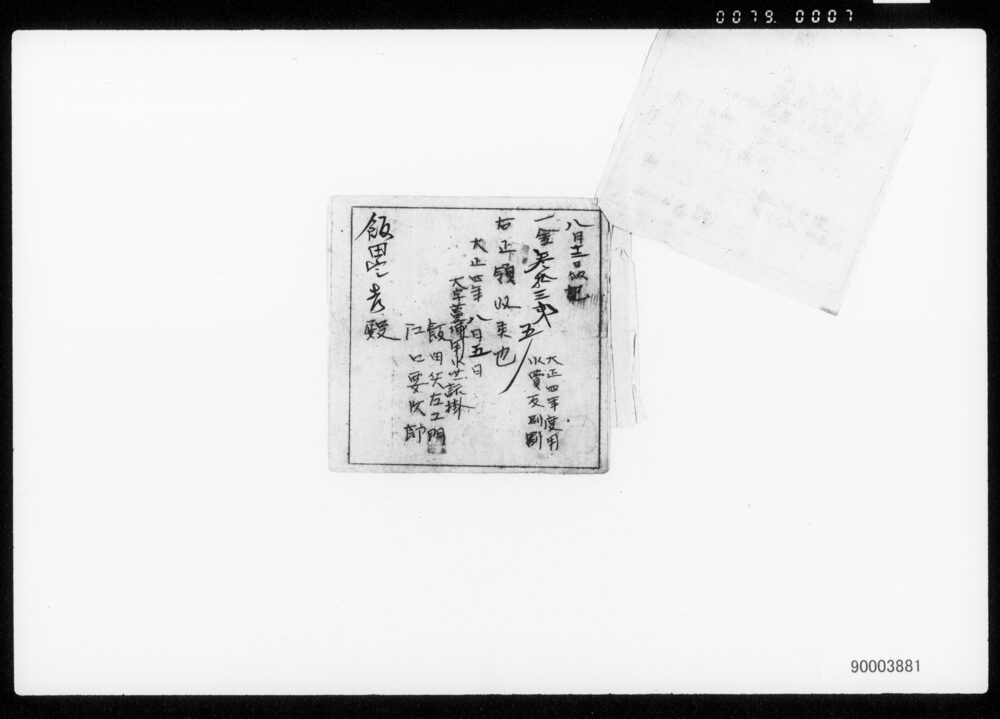 0079. 0007
八月十二日
一金 拾三 五
大正四年度用
水費反別割
右正領収候也
大正四年八月五日
大字 用水世話掛
飯田 左エ門
江口要次郎
飯田 吉殿
90003881